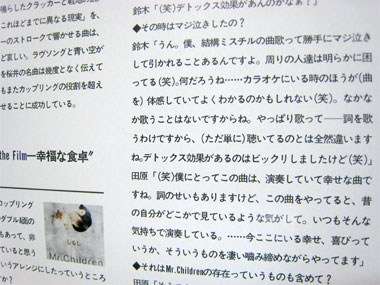 鈴木「(笑)デトックス効果があんのかなぁ?」
◆その時はマジ泣きしたの?
鈴木「うん。僕、結構ミスチルの曲歌って勝手にマジ泣き
して引かれることあるんですよ。周りの人達は明らかに困
ってる(笑)。何だろうね……カラオケにいる時のほうが(曲
を)体感していてよくわかるのかもしれない(笑)。なかな
か歌うことはないですからね。やっぱり歌って――詞を歌
うわけですから、(ただ単に)聴いてるのとは全然違います
ね。デトックス効果があるのはビックリしましたけど(笑)」
田原「(笑)僕にとってこの曲は、演奏していて幸せな曲で
すね。詞のせいもありますけど、この曲をやってると、昔
の自分がどこかで見ているような気がして。いつもそんな
気持ちで演奏している。……今ここにいる幸せ、喜びって
いうか、そういうものを凄い噛み締めながらやってます」
◆それはMr.Childrenの存在っていうものも含めて?
鳴らしたクラッカーと戦地の
これほどまでに異なる現実」を、
ーのストロークで響かせる曲は、
ない。ラヴソングと青い空が
る桜井の名曲は幾度となく伝えて
もまたカップリングの役割を超え
せることに成功している。
the Film―幸福な食卓"
カップリング
ダブルA面の
もあって、非
ていると思う
いうアレンジにしたっていうところ
しるし
Mr.Children